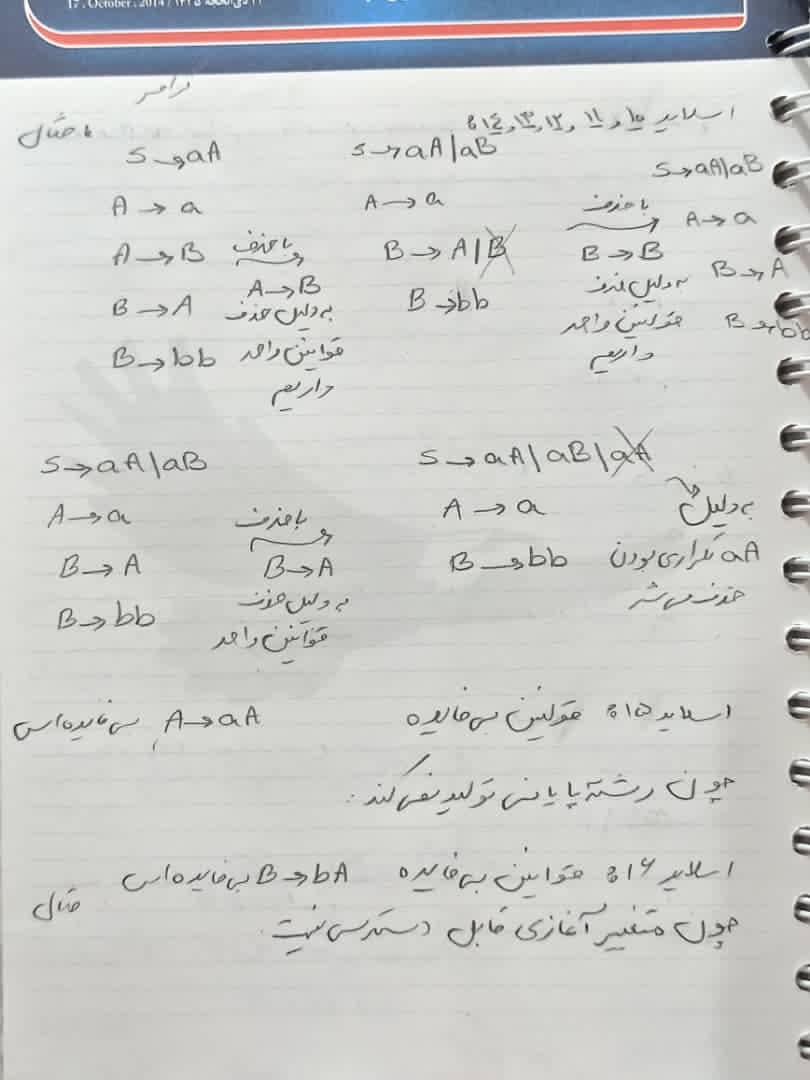 17. October. 2014 /
اسلاید ۱۰ و ۱۱ و ۱۲ و ۱۳ و ۱٤ :
مثال
S → aA
A → a
A → B
B → A
B → bb
با حذف
A → B
به دلیل حذف
قوانین واحد
داریم
S → aA|aB
A → a
B → A|B
B → bb
با حذف
B → B
به دلیل حذف
قوانین واحد
داریم
S → aA|aB
A → a
B → A
B → bb
S → aA|aB
A → a
B → A
B → bb
با حذف
B → A
به دلیل حذف
قوانین واحد
S → aA|aB|aA
A → a
B → bb
به دلیل
aA تکراری بودن
حذف می شد
اسلاید ۱۵: قوانین بی فایده A → aA بی فایده اس
چون رشته پایانی تولید نمی کند.
اسلاید ۱۶: قوانین بی فایده B → bA بی فایده اس
مثال
چون متغیر آغازی قابل دسترسی نیست.